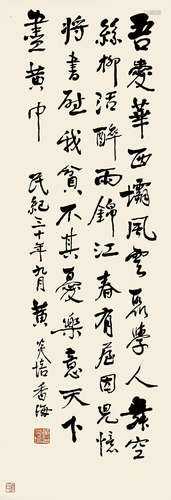 吾愛華西壩風雲聚學人舞空
絲柳活醉雨錦江春有蘆因見憶
將書慰我貧不其憂樂意天下
盡黃巾
民紀三十年九月黃
炎培香海